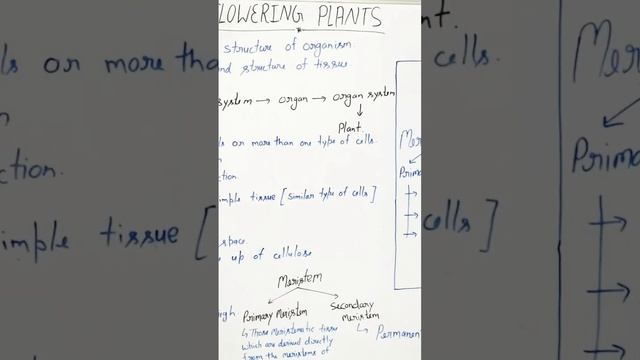 FLOWERING PLANTS
structure of organism.
structure of tissue
system → organ → organ system
Plant.
or more than one type of cells.
ction
imple tissue [similar type of cells]
space.
up of cellulose
Meristem
Primary Meristem
Secondary Meristem
↳ Those Meristematic tissue
which are derived directly
from the meristems of
↳ Permanent
Mer
Prima
ls or more than
ction.
imple tissue [
Plant.
cells.
cells]
Mer
Prima